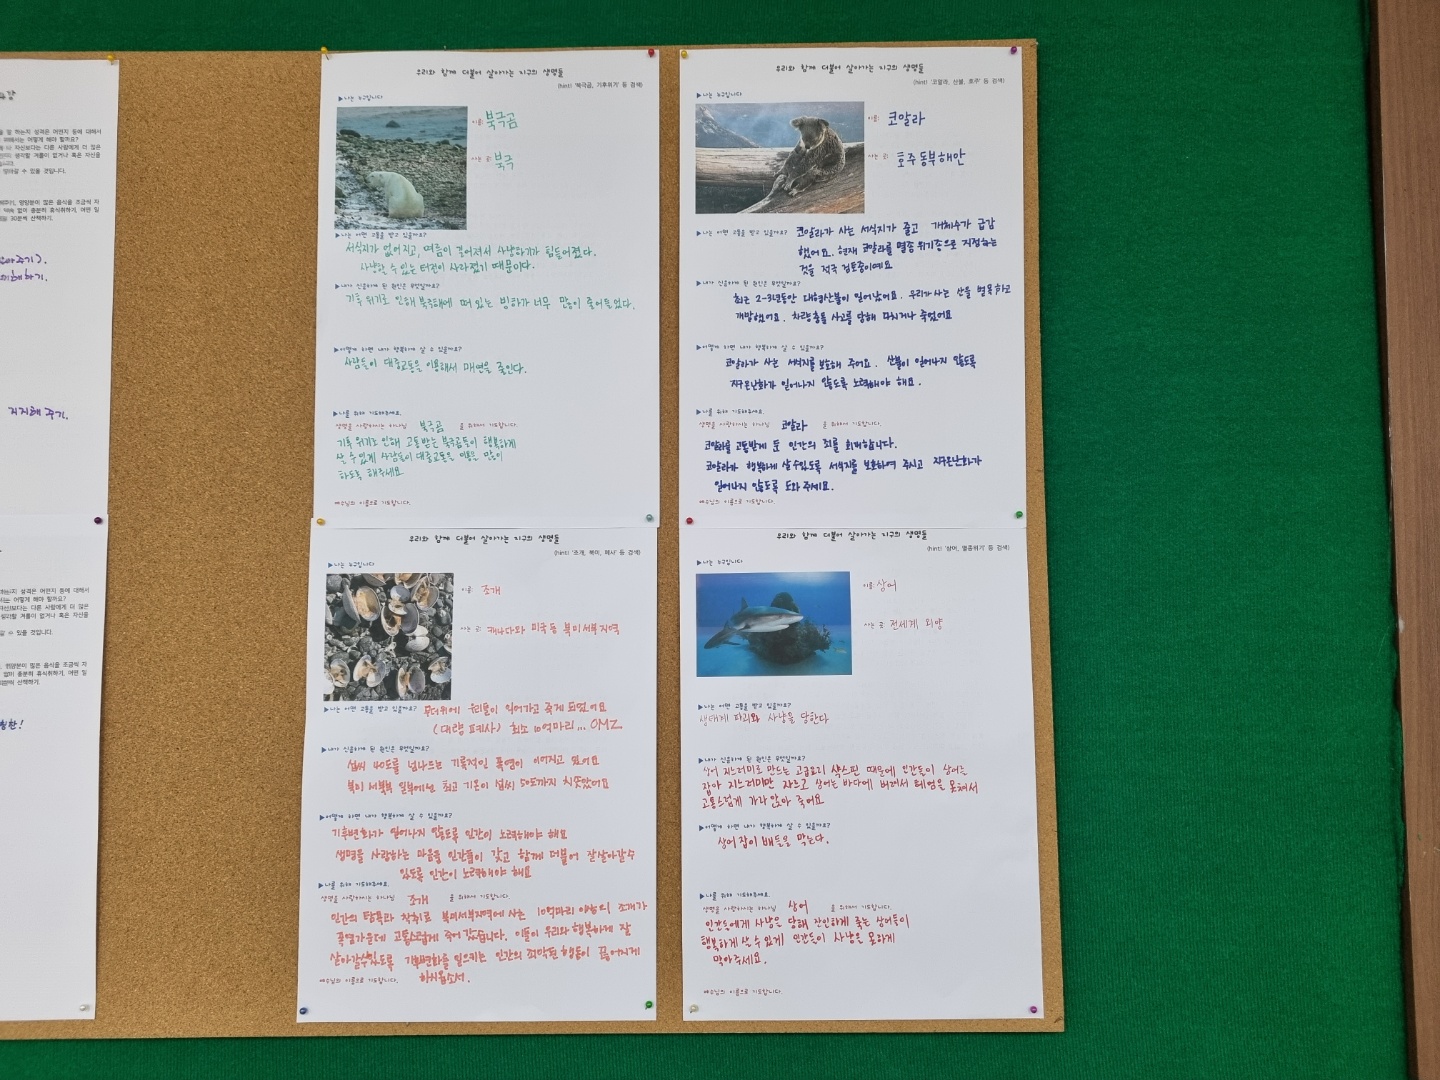 우리와 함께 더불어 살아가는 지구의 생명들
(hint! '북극곰, 기후위기' 등 검색)
▶나는 누구입니다
이름: 북극곰
사는 곳: 북극
▶나는 어떤 고통을 받고 있을까요?
서식지가 없어지고, 여름이 길어져서 사냥하기가 힘들어졌다.
사냥할 수 있는 터전이 사라졌기 때문이다.
▶내가 신음하게 된 원인은 무엇일까요?
기후 위기로 인해 북극해에 떠 있는 빙하가 너무 많이 줄어들었다.
▶어떻게 하면 내가 행복하게 살 수 있을까요?
사람들이 대중교통을 이용해서 매연을 줄인다.
▶나를 위해 기도해주세요.
생명을 사랑하시는 하나님 북극곰 을 위해서 기도합니다.
기후 위기로 인해 고통 받는 북극곰들이 행복하게
살 수 있게 사람들이 대중교통을 이용을 많이
하도록 해주세요
예수님의 이름으로 기도합니다.
우리와 함께 더불어 살아가는 지구의 생명들
(hint! '코알라, 산불, 호주' 등 검색)
▶나는 누구입니다
이름: 코알라
사는 곳: 호주 동부 해안
▶나는 어떤 고통을 받고 있을까요? 코알라가 사는 서식지가 줄고 개체수가 급감
했어요. 현재 코알라를 멸종 위기종으로 지정하는
것을 적극 검토중이예요
▶내가 신음하게 된 원인은 무엇일까요?
최근 2-3년동안 대형산불이 일어났어요. 우리가 사는 산을 벌목하고
개발했어요. 차량충돌 사고를 당해 다치거나 죽었어요
▶어떻게 하면 내가 행복하게 살 수 있을까요?
코알라가 사는 서식지를 보호해 주어요. 산불이 일어나지 않도록
지구온난화가 일어나지 않도록 노력해야 해요.
▶나를 위해 기도해주세요.
생명을 사랑하시는 하나님 코알라 을 위해서 기도합니다.
코알라를 고통받게 둔 인간의 죄를 회개합니다.
코알라가 행복하게 살 수있도록 서식지를 보호하여 주시고 지구온난화가
일어나지 않도록 도와 주세요.
예수님의 이름으로 기도합니다.
우리와 함께 더불어 살아가는 지구의 생명들
(hint! '조개, 북미, 폐사' 등 검색)
▶나는 누구입니다
이름: 조개
사는 곳: 캐나다와 미국 등 북미서부지역
▶나는 어떤 고통을 받고 있을까요? 무더위에 우리들이 익어가고 죽게 되었어요
(대량 폐사) 최소 10억마리... OMZ.
▶내가 신음하게 된 원인은 무엇일까요?
섭씨 40도를 넘나드는 기록적인 폭염이 이어지고 있어요
북미 서북부 일부에선 최고 기온이 섭씨 50도까지 치솟았어요
▶어떻게 하면 내가 행복하게 살 수 있을까요?
기후변화가 일어나지 않도록 인간이 노력해야 해요
생명을 사랑하는 마음을 인간들이 갖고 함께 더불어 잘살아갈수
있도록 인간이 노력해야 해요
▶나를 위해 기도해주세요.
생명을 사랑하시는 하나님 조개 을 위해서 기도합니다.
인간의 탐욕과 착취로 북미서부지역에 사는 10억마리 이상의 조개가
폭염가운데 고통스럽게 죽어 갔습니다. 이들이 우리와 행복하게 잘
살아갈수있도록 기후변화를 일으키는 인간의 죄악된 행동이 끊어지게
하시옵소서.
예수님의 이름으로 기도합니다.
우리와 함께 더불어 살아가는 지구의 생명들
(hint! '상어, 멸종위기' 등 검색)
▶나는 누구입니다
이름: 상어
사는 곳: 전세계 외양
▶나는 어떤 고통을 받고 있을까요?
생태계 파괴와 사냥을 당한다
▶내가 신음하게 된 원인은 무엇일까요?
상어 지느러미로 만드는 고급요리 샥스핀 때문에 인간들이 상어를
잡아 지느러미만 자르고 상어는 바다에 버려서 헤엄을 못쳐서
고통스럽게 가라 앉아 죽어요
▶어떻게 하면 내가 행복하게 살 수 있을까요?
상어 잡이 배들을 막는다.
▶나를 위해 기도해주세요.
생명을 사랑하시는 하나님 상어 을 위해서 기도합니다.
인간들에게 사냥을 당해 잔인하게 죽는 상어들이
행복하게 살 수 있게 인간들이 사냥을 못하게
막아주세요.
예수님의 이름으로 기도합니다.
지지해 주기.